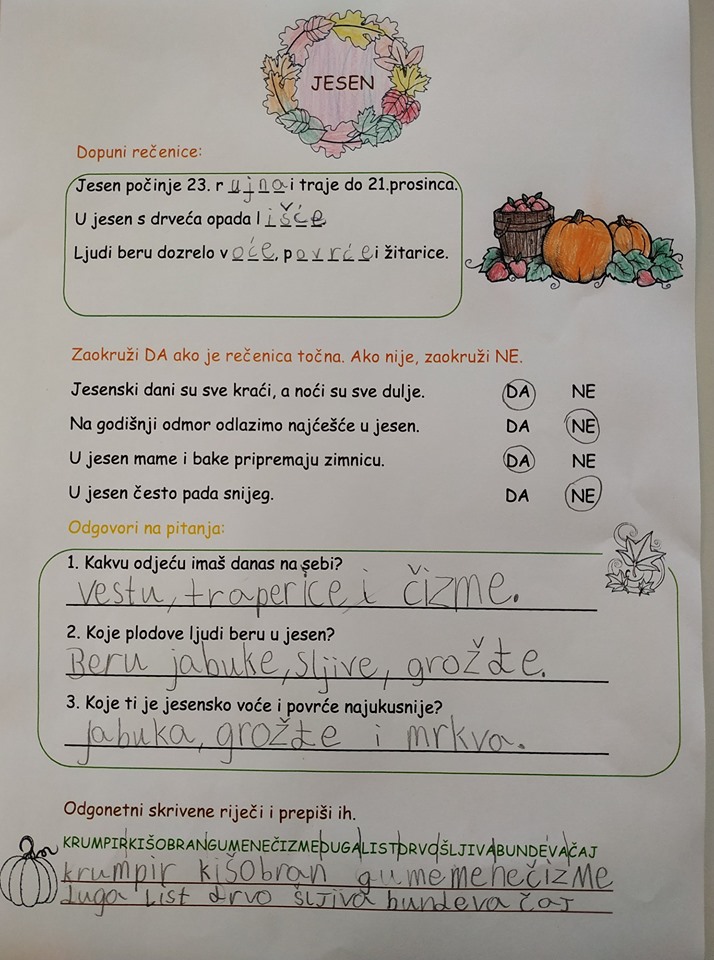 JESEN
Dopuni rečenice:
Jesen počinje 23. rujna i traje do 21.prosinca.
U jesen s drveća opada lišće
Ljudi beru dozrelo voće, povrće i žitarice.
Zaokruži DA ako je rečenica točna. Ako nije, zaokruži NE.
Jesenski dani su sve kraći, a noći su sve dulje. DA NE
Na godišnji odmor odlazimo najćešće u jesen. DA NE
U jesen mame i bake pripremaju zimnicu. DA NE
U jesen često pada snijeg. DA NE
Odgovori na pitanja:
1. Kakvu odjeću imaš danas na sebi?
vestu, traperice, i čizme.
2. Koje plodove ljudi beru u jesen?
Beru jabuke, sljive, grožđe.
3. Koje ti je jesensko voće i povrće najukusnije?
jabuka, grožđe i mrkva.
Odgonetni skrivene riječi i prepiši ih.
KRUMPIRKIŠOBRANGUMENEČIZMEDUGALISTDRVOŠLJIVABUNDEVAČAJ
krumpir kišobran gumemenečizme
duga list drvo šljiva bundeva čaj